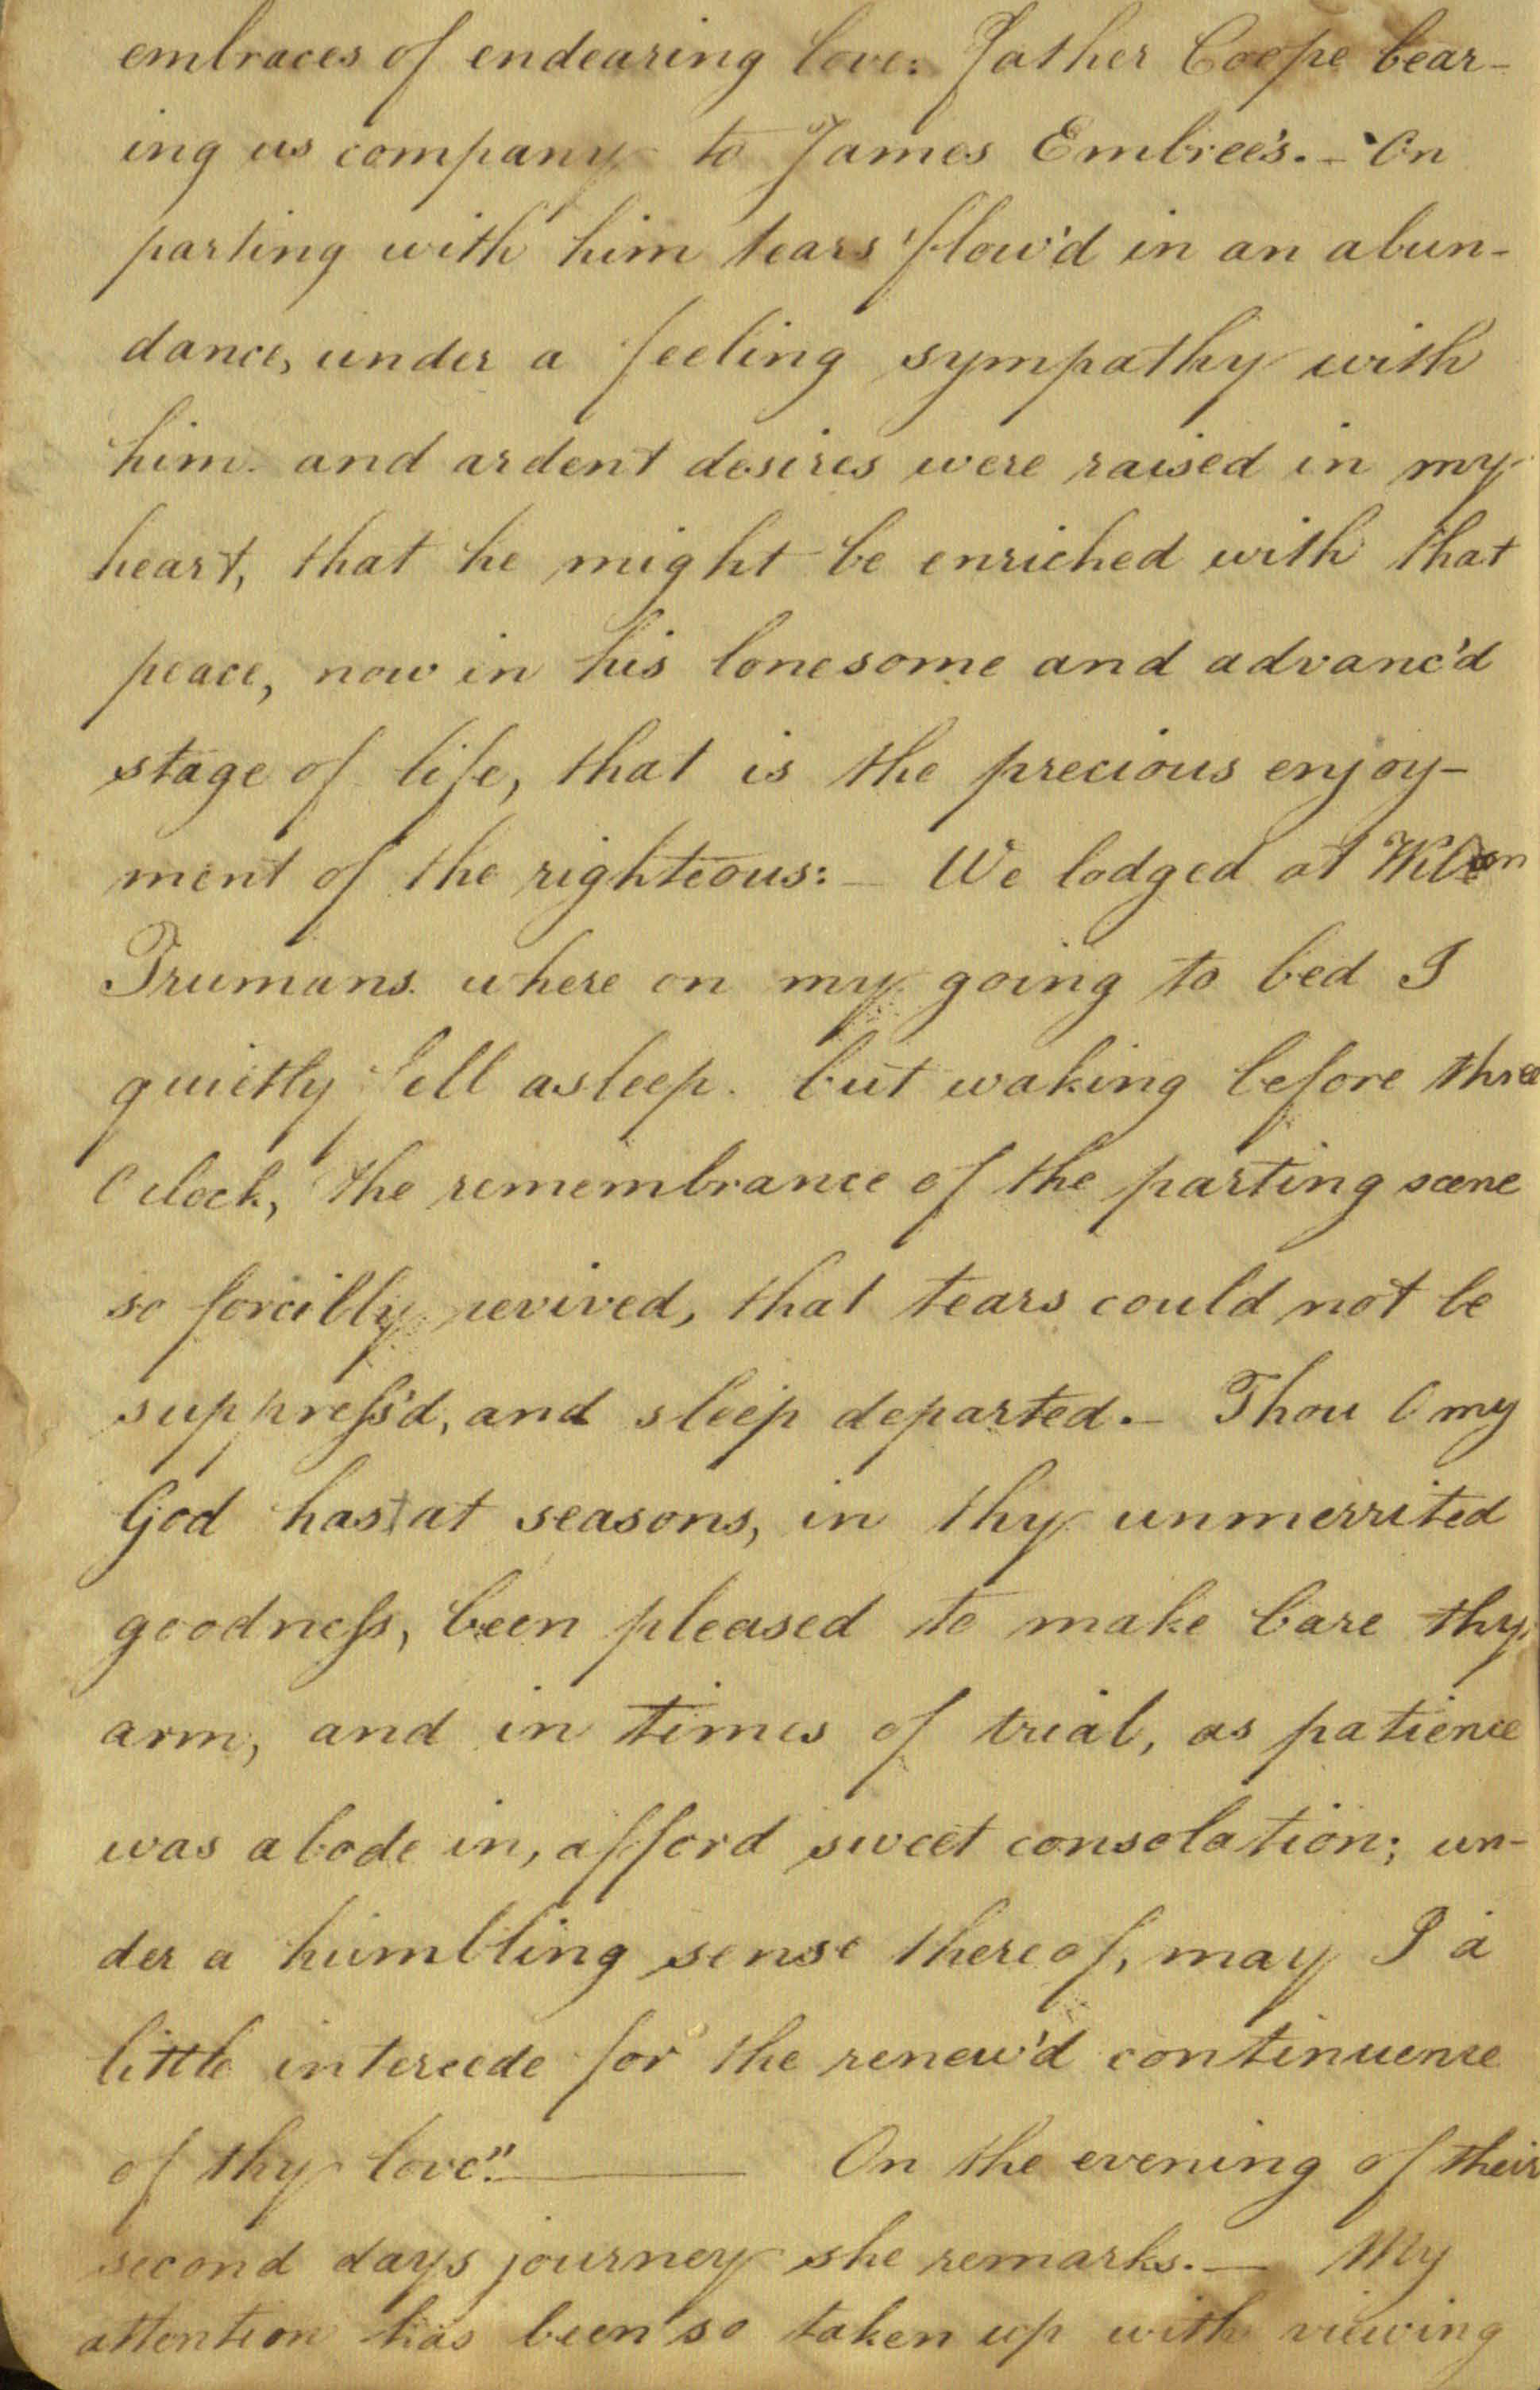 embraces of endearing love: Father Coope bear-
ing us company to James Embree's. - On
parting with him tears flow'd in an abun-
dance, under a feeling sympathy with
him. and ardent desires were raised in my
heart, that he might be enriched with that
peace, now in his lonesome and advanc'd
stage of life, that is the precious enjoy-
ment of the righteous: - We lodged at
Trumans. where on my going to bed I
quietly fell asleep. but waking before three
O clock, the remembrance of the parting scene
so forcibly revived, that tears could not be
suppreſs'd, and sleep departed. - Thou O my
God hast at seasons, in thy unmerrited
goodneſs, been pleased to make bare thy
arm, and in times of trial, as patience
was abode in, afford sweet consolation; un-
der a humbling sense thereof, may I a
little intercede for the renew'd continuence
of thy love". — On the evening of their
second days journey she remarks. — My
attention has been so taken up with viewing